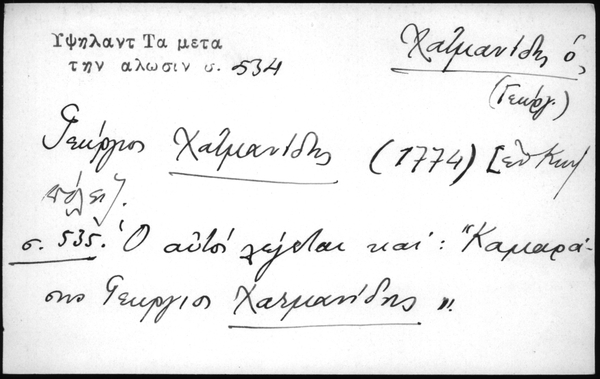 Υψηλαντ Τα μετα
την αλωσιν σ. 534
Χατμανίδης ὁ,
(Γεώργ.)
Γεώργιος Χατμανίδης (1774) [ἐν Κων/
πόλει].
σ. 535. Ὁ αὐτὸς λέγεται καί: "Καμαρά-
σης Γεώργιος Χατμανίδης".